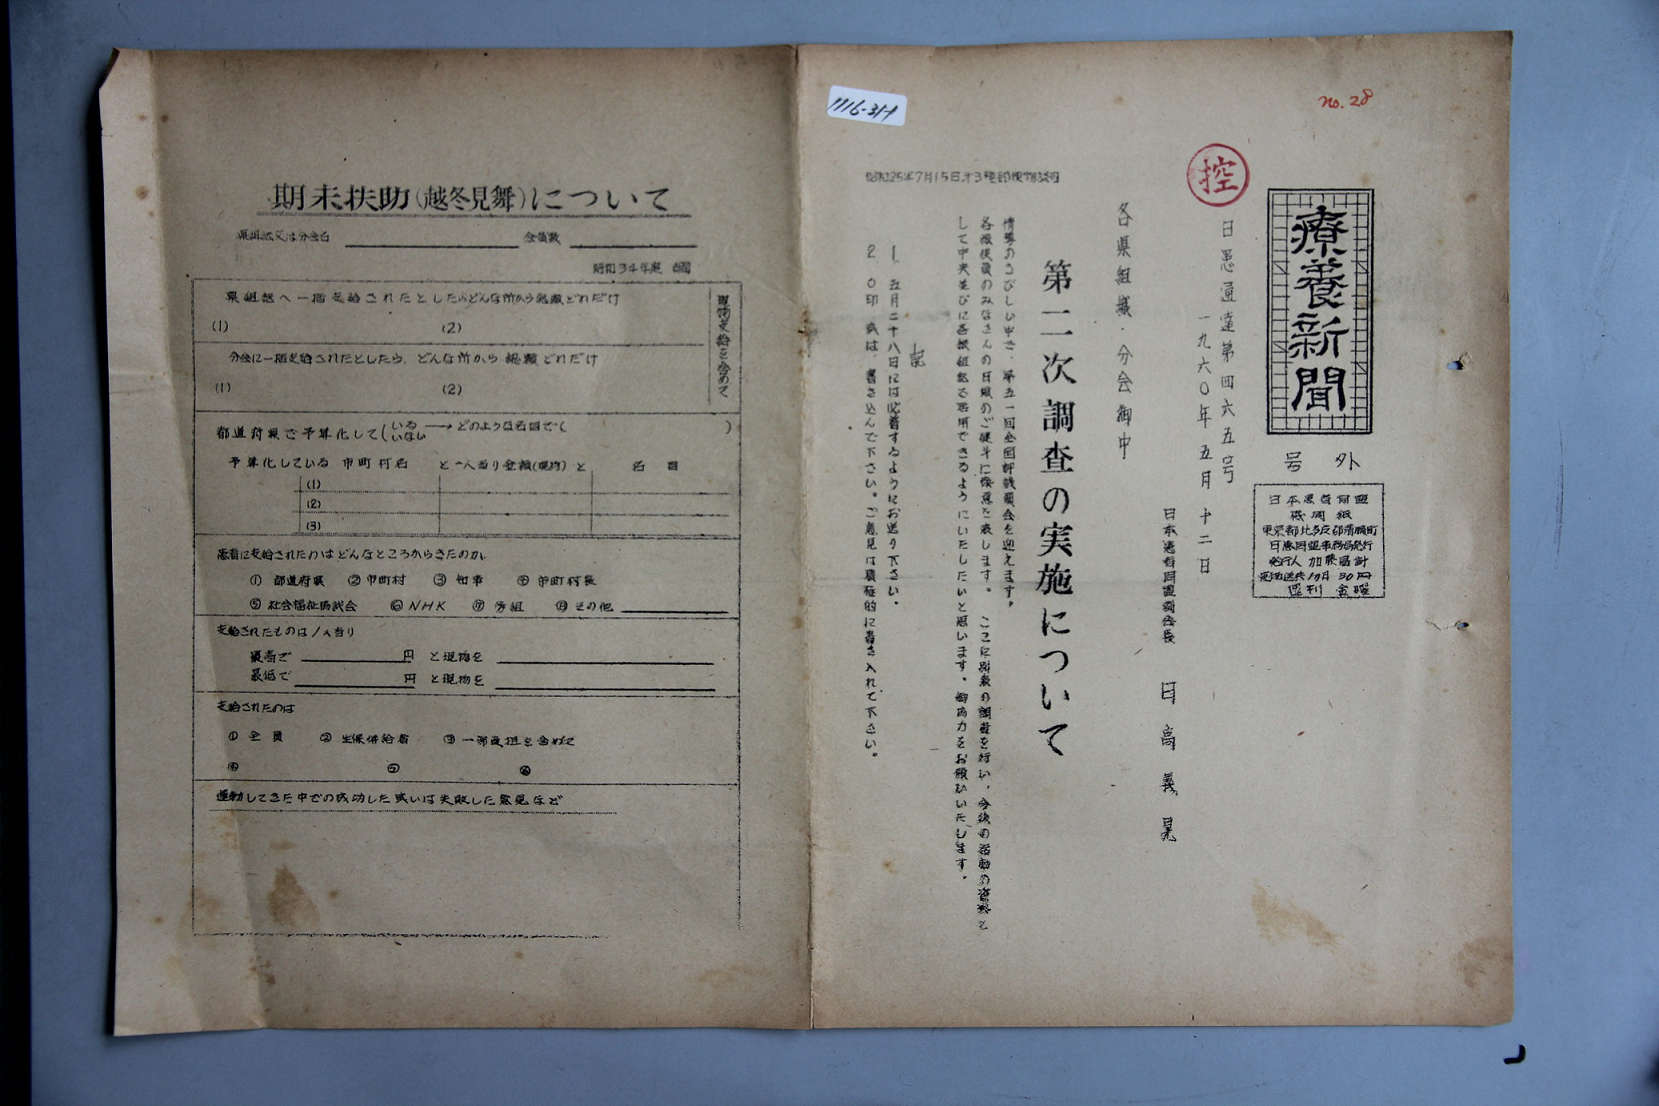 no.28
1116-31-1
控
療養新聞
号外
日本患者同盟
機関紙
東京都北多摩郡清瀬町
日患同盟事務局発行
発行人 加藤
週刊 金曜
昭和25年7月15日第3種郵便物認可
日患通達第四六五号
一九六〇年五月十二日
日本患者同盟
日高義
各県組織・分会御中
第二次調査の実施について
情勢のきびしい中を、第五一回全国評議員会を迎えます。
各級役員のみなさんの日頃のご健斗に敬意を表します。ここに別表の調査を行い、今後の活動の資料と
して中央並びに各級組織で活用できるようにいたしたいと思います。御協力をお願いいたします。
記
1. 五月二十八日には必着するようにお送り下さい。
2 〇印或は、書き込んで下さい。ご意見は積極的に書き入れて下さい。
期末扶助(越冬見舞)について
県組織又は分会名
会員数
昭和34年度
県組織へ一括支給されたとしたらどんな所から総額どれだけ
(1) (2)
分会に一括支給されたとしたら、どんな所から総額どれだけ
(1) (2)
現物支給を含めて
都道府県で予算化して(いる いない → どのような名目で( )
予算化している 市町村名 と 一人当り金額(現物) と 名目
(1)
(2)
(3)
患者に支給されたのはどんなところからきたのか
① 都道府県 ② 市町村 ③ 知事 ④ 市町村長
⑤ 社会福祉協議会 ⑥ NHK ⑦ 労組 ⑧ その他
支給されたものは1人当り
最高で 円 と現物を
最低で 円 と現物を
支給されたのは
① 全員 ② 生保併給者 ③ 一部負担を含めて
④ ⑤ ⑥
運動してきた中での成功した或いは失敗した意見など